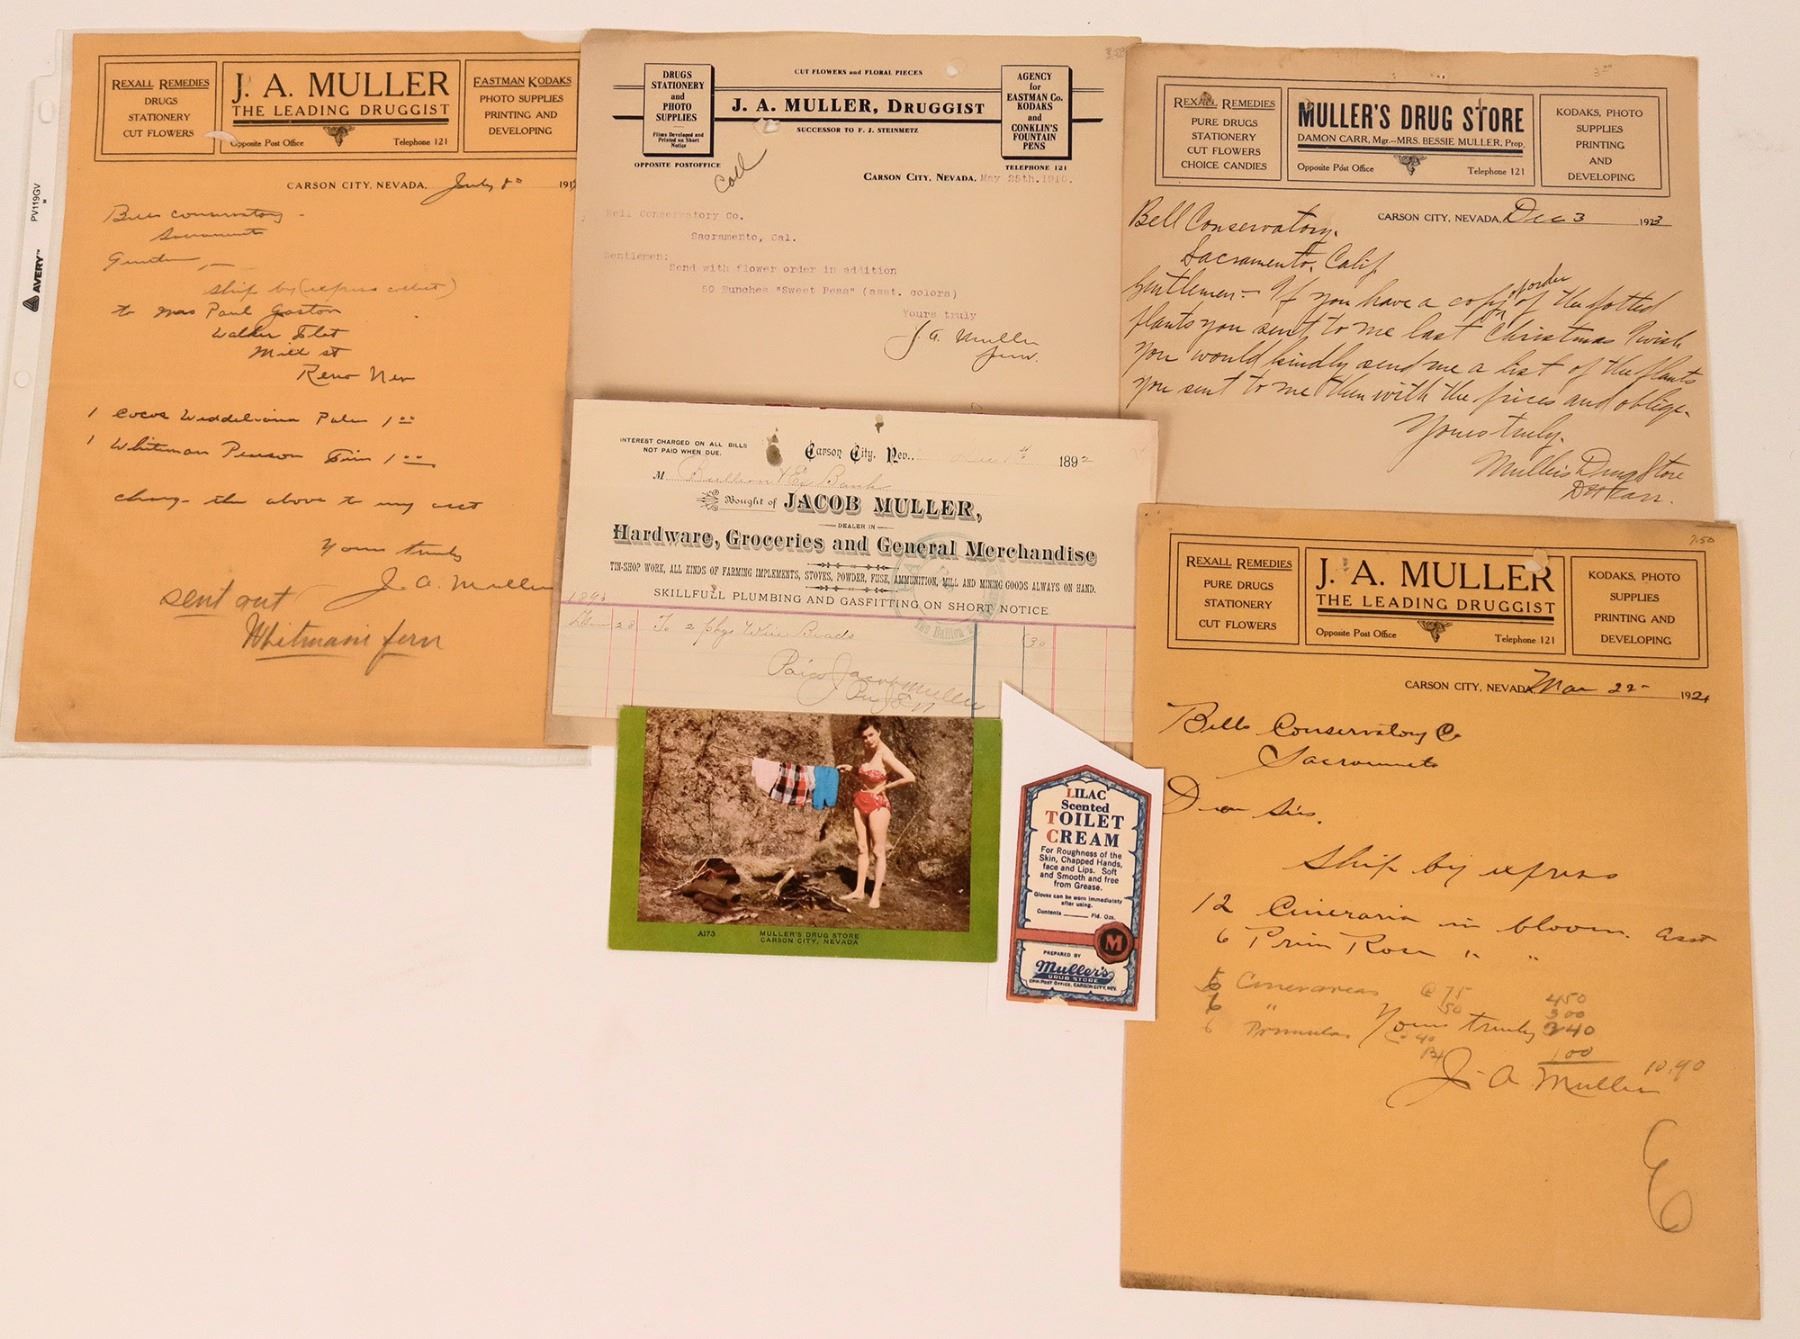 PV119GV
AVERY
REXALL REMEDIES
DRUGS
STATIONERY
CUT FLOWERS
J. A. MULLER
THE LEADING DRUGGIST
Opposite Post Office
Telephone 121
EASTMAN KODAKS
PHOTO SUPPLIES
PRINTING AND
DEVELOPING
CARSON CITY, NEVADA, July 191
Bells Conservatory
Sacramento
ship by (express collect)
to Mrs Paul Gaston
Walker Flat
Mill st
Reno Nev
1 Cocos Weddeliana Palm 1 00
1 Whitman Fern 1 00
charge the above to my acct
Yours truly
J. A. Muller
sent out
Whitmani fern
DRUGS
STATIONERY
and
PHOTO
SUPPLIES
Films Developed and
Printed on Short
Notice
OPPOSITE POSTOFFICE
CUT FLOWERS and FLORAL PIECES
J. A. MULLER, DRUGGIST
SUCCESSOR TO F. J. STEINMETZ
AGENCY
for
EASTMAN Co.
KODAKS
and
CONKLIN'S
FOUNTAIN
PENS
TELEPHONE 121
CARSON CITY, NEVADA, May 25th.1916.
Bell Conservatory Co.
Sacramento, Cal.
Gentlemen:
Send with flower order in addition
50 Bunches "Sweet Peas" (asst. colors)
Yours truly
J. A. Muller
REXALL REMEDIES
PURE DRUGS
STATIONERY
CUT FLOWERS
CHOICE CANDIES
MULLER'S DRUG STORE
DAMON CARR, Mgr.--MRS. BESSIE MULLER, Prop.
Opposite Post Office
Telephone 121
KODAKS, PHOTO
SUPPLIES
PRINTING
AND
DEVELOPING
CARSON CITY, NEVADA, Dec 3 1923
Bell Conservatory.
Sacramento, Calif
Gentlemen:- If you have a copy of order of the potted
plants you sent to me last Christmas I wish
you would kindly send me a list of the plants
you sent to me then with the prices and oblige-
Yours truly.
Mullers Drug Store
D Carr.
INTEREST CHARGED ON ALL BILLS
NOT PAID WHEN DUE.
Carson City, Nev., 1892
M Bullion & Ex Bank
Bought of JACOB MULLER,
DEALER IN
Hardware, Groceries and General Merchandise
TIN-SHOP WORK, ALL KINDS OF FARMING IMPLEMENTS, STOVES, POWDER, FUSE, AMMUNITION, MILL AND MINING GOODS ALWAYS ON HAND.
SKILLFULL PLUMBING AND GASFITTING ON SHORT NOTICE
28 To 2 pkgs Wire Brads 30
Paid Jacob Muller
REXALL REMEDIES
PURE DRUGS
STATIONERY
CUT FLOWERS
J. A. MULLER
THE LEADING DRUGGIST
Opposite Post Office
Telephone 121
KODAKS, PHOTO
SUPPLIES
PRINTING AND
DEVELOPING
7.50
CARSON CITY, NEVADA, Mar 22 1921
Bells Conservatory Co
Sacramento
Dear Sirs.
Ship by express
12 Cineraria in bloom. asst
6 Prim Rose " "
6 Cinerareas @ 75 450
6 " 50 300
6 Primulas @ 40 240
Yours truly
100
10.90
J. A. Muller
A173
MULLER'S DRUG STORE
CARSON CITY, NEVADA
LILAC
Scented
TOILET
CREAM
For Roughness of the
Skin, Chapped Hands,
face and Lips. Soft
and Smooth and free
from Grease.
Gloves can be worn immediately
after using.
Contents Fld. Ozs.
M
PREPARED BY
Muller's
DRUG STORE
OPP. POST OFFICE, CARSON CITY, NEV.